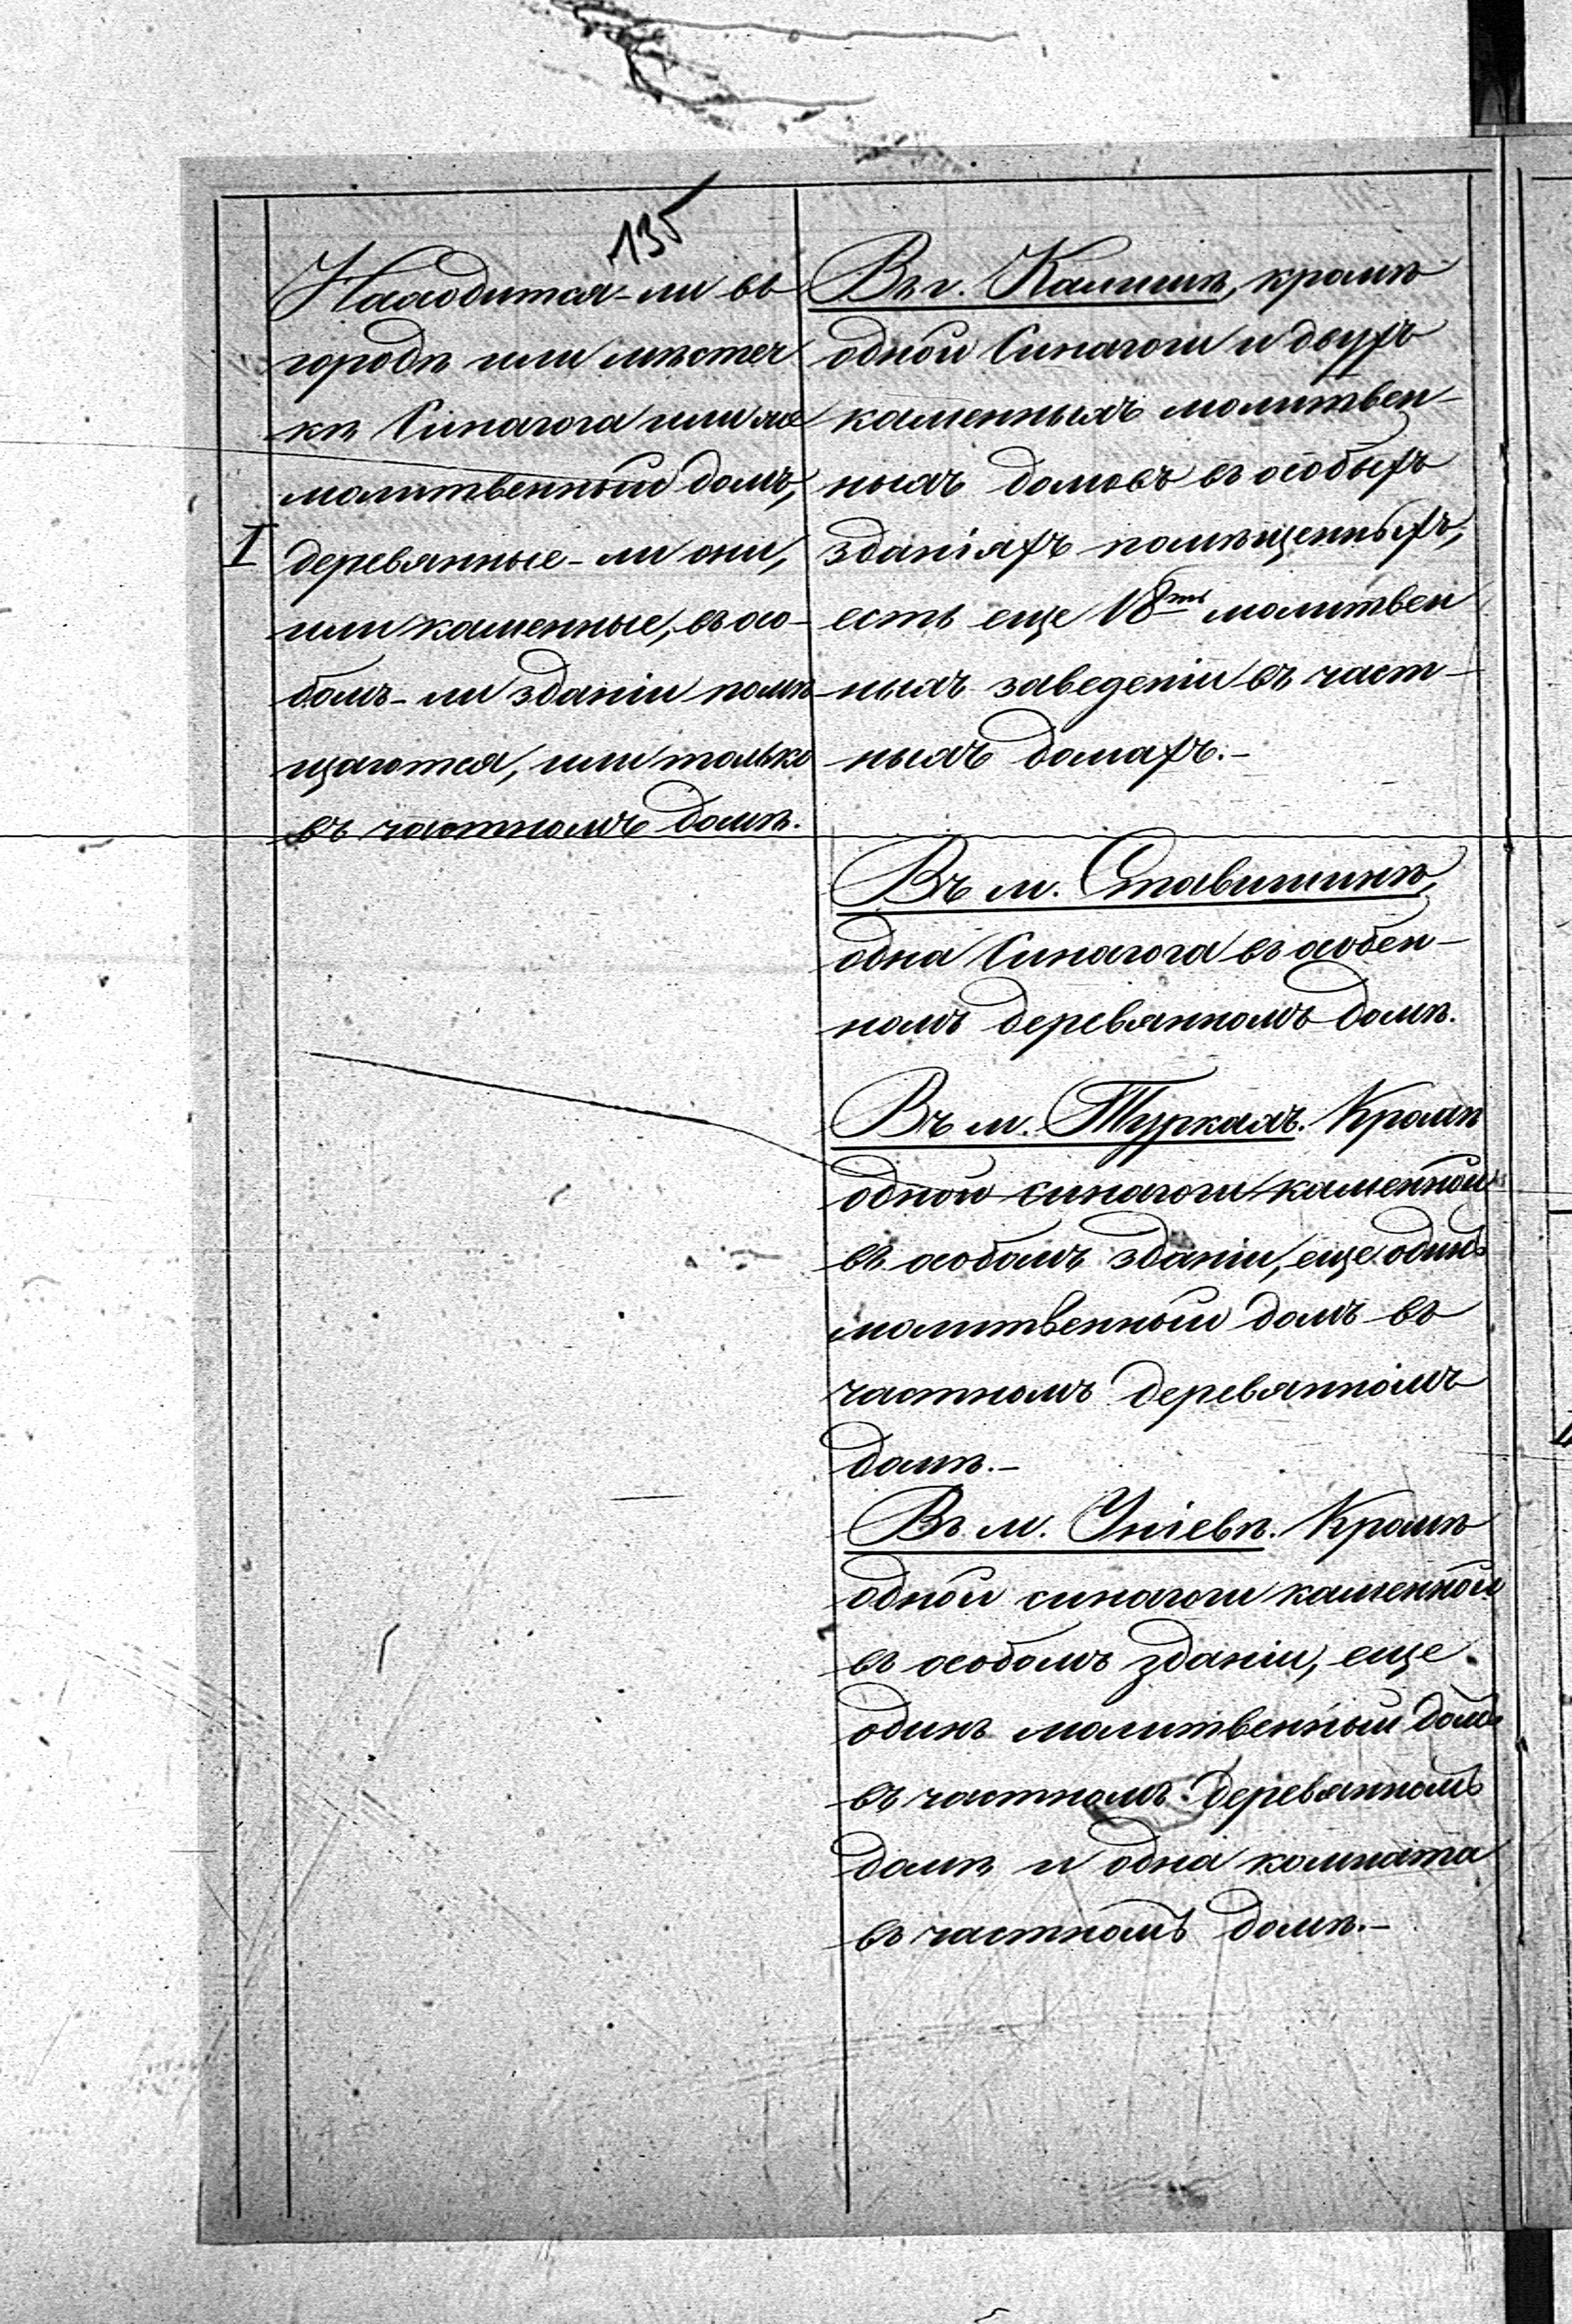 135
Находится-ли въ
городѣ или мѣстеч
кѣ Синагога или же
молитвенный домъ,
I
деревянные-ли они,
или каменные, въ осо-
бомъ-ли зданіи помѣ
щаются, или только
въ частномъ домѣ.
Въ г. Калишѣ, кромѣ
одной Синагоги и двухъ
каменныхъ молитвен-
ныхъ домовъ въ особыхъ
зданіяхъ помѣщенныхъ,
есть еще 18ть молитвен
ныхъ заведеніи въ част-
ныхъ домахъ.-
Въ м. Ставишинѣ,
одна Синагога въ особен-
номъ деревянномъ домѣ.
Въ м. Туркахъ. Кромѣ
одной синагоги каменной
въ особомъ зданіи, еще одинъ
молитвенный домъ въ
частномъ деревянномъ
домѣ.-
Въ м. Уніевѣ. Кромѣ
одной синагоги каменной
въ особомъ зданіи, еще
одинъ молитвенный домъ
въ частномъ деревянномъ
домѣ и одна комната
въ частномъ домѣ.-